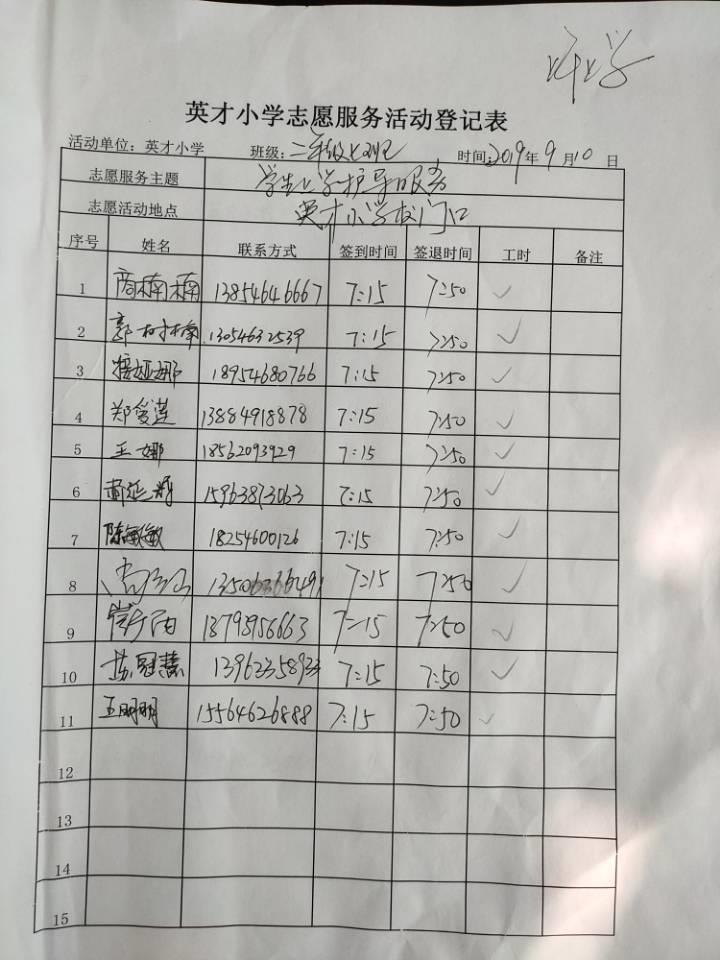 上学
英才小学志愿服务活动登记表
活动单位：英才小学 班级：二年级七班 时间：2019年9月10日
志愿服务主题 学生上学护导服务
志愿活动地点 英才小学校门口
序号 姓名 联系方式 签到时间 签退时间 工时 备注
1 商楠楠 13854646667 7:15 7:50 ✓
2 郭树楠 13054632539 7:15 7:50 ✓
3 娜 18954680766 7:15 7:50 ✓
4 郑爱莲 13884918878 7:15 7:50 ✓
5 王娜 18562093929 7:15 7:50 ✓
6 15963873063 7:15 7:50 ✓
7 陈敏敏 18254600126 7:15 7:50 ✓
8 7:15 7:50 ✓
9 7:15 7:50 ✓
10 苏冠慧 7:15 7:50 ✓
11 王明明 15564626888 7:15 7:50 ✓
12
13
14
15